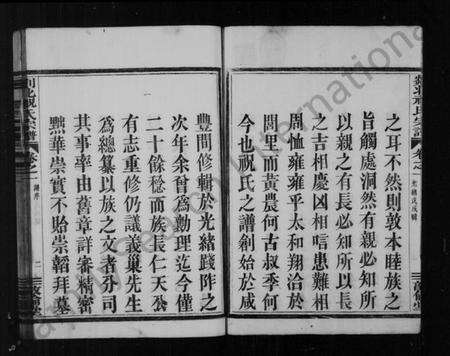 之耳不然則敦本睦族之
旨觸處洞然有親必知所
以親之有長必知所以長
之吉相慶凶相唁患難相
周恤雍雍乎太和翔洽於
閭里而黃農何古叔季何
今也祝氏之譜創始於咸
豐間修輯於光緒踐阼之
次年余曾為勷理迄今僅
二十餘稔而族長仁天公
有志重修仍議義巢先生
為總纂以族之文者分司
其事率由舊章詳審精密
黜華崇實不貽崇韜拜墓
祝氏宗譜
卷之一